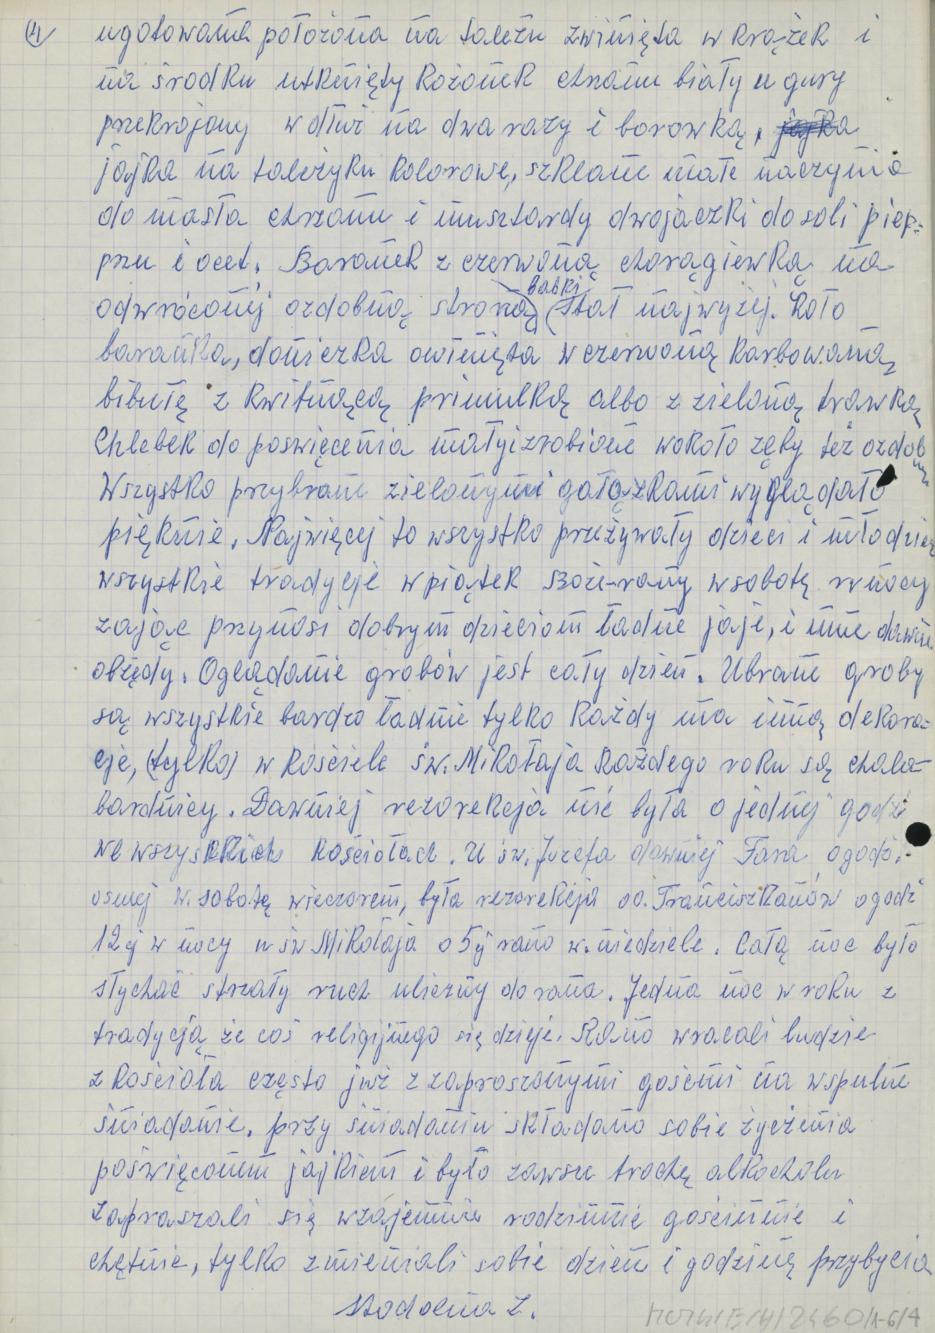 ④ ugotowana położona na talerzu zwinięta w krążek i
na środku utknięty korzonek chrzanu biały u gury
przekrojony wdłuż na dwa razy i borowką,
jajka na talerzyku kolorowe, szklane małe naczynia
do masła chrzanu i musztardy dwojaczki do soli piep-
przu i ocet. Baranek z czerwoną chorągiewką na
odwróconej ozdobną stroną babki stał najwyżej. Koło
baranka, doniczka owinięta w czerwoną karbowaną
bibułę z kwitnącą primulką albo z zieloną trawką
Chlebek do poswięcenia mały izrobione wokoło zęby też ozdobny
Wszystko przybrane zielonymi gałązkami wyglądało
pięknie. Najwięcej to wszystko przeżywały dzieci i młodzież
wszystkie tradycje w piątek Boże-rany w sobotę w nocy
zając przynosi dobrym dzieciom ładne jaje, i inne dawne
obrzędy. Oglądanie grobów jest cały dzień. Ubrane groby
są wszystkie bardzo ładnie tylko każdy ma inną dekora-
cje, (tylko) w kościele św. Mikołaja każdego roku są chala-
bardnicy. Dawniej rezorekcja nie była o jednej godzi
we wszystkich kościołach. U św. Józefa dawniej Fara, ogodz.
osmej w. sobotę wieczorem, była rezorekcja oo. Franciszkanów ogodz
12ej w nocy u św Mikołaja o 5ej rano w. niedziele. Całą noc było
słychać strzały ruch uliczny do rana. Jedna noc w roku z
tradycją że coś religijnego się dzieje. Rano wracali ludzie
z kościoła często już z zaproszonymi gośćmi na wspulne
śniadanie. przy śniadaniu składano sobie życzenia
poświęconem jajkiem i było zawsze trochę alkocholu
Zapraszali się wzajemnie rodzinnie gościnnie i
chętnie, tylko zmieniali sobie dzień i godzinę przybycia
Stodolna Z.
/1-6/4